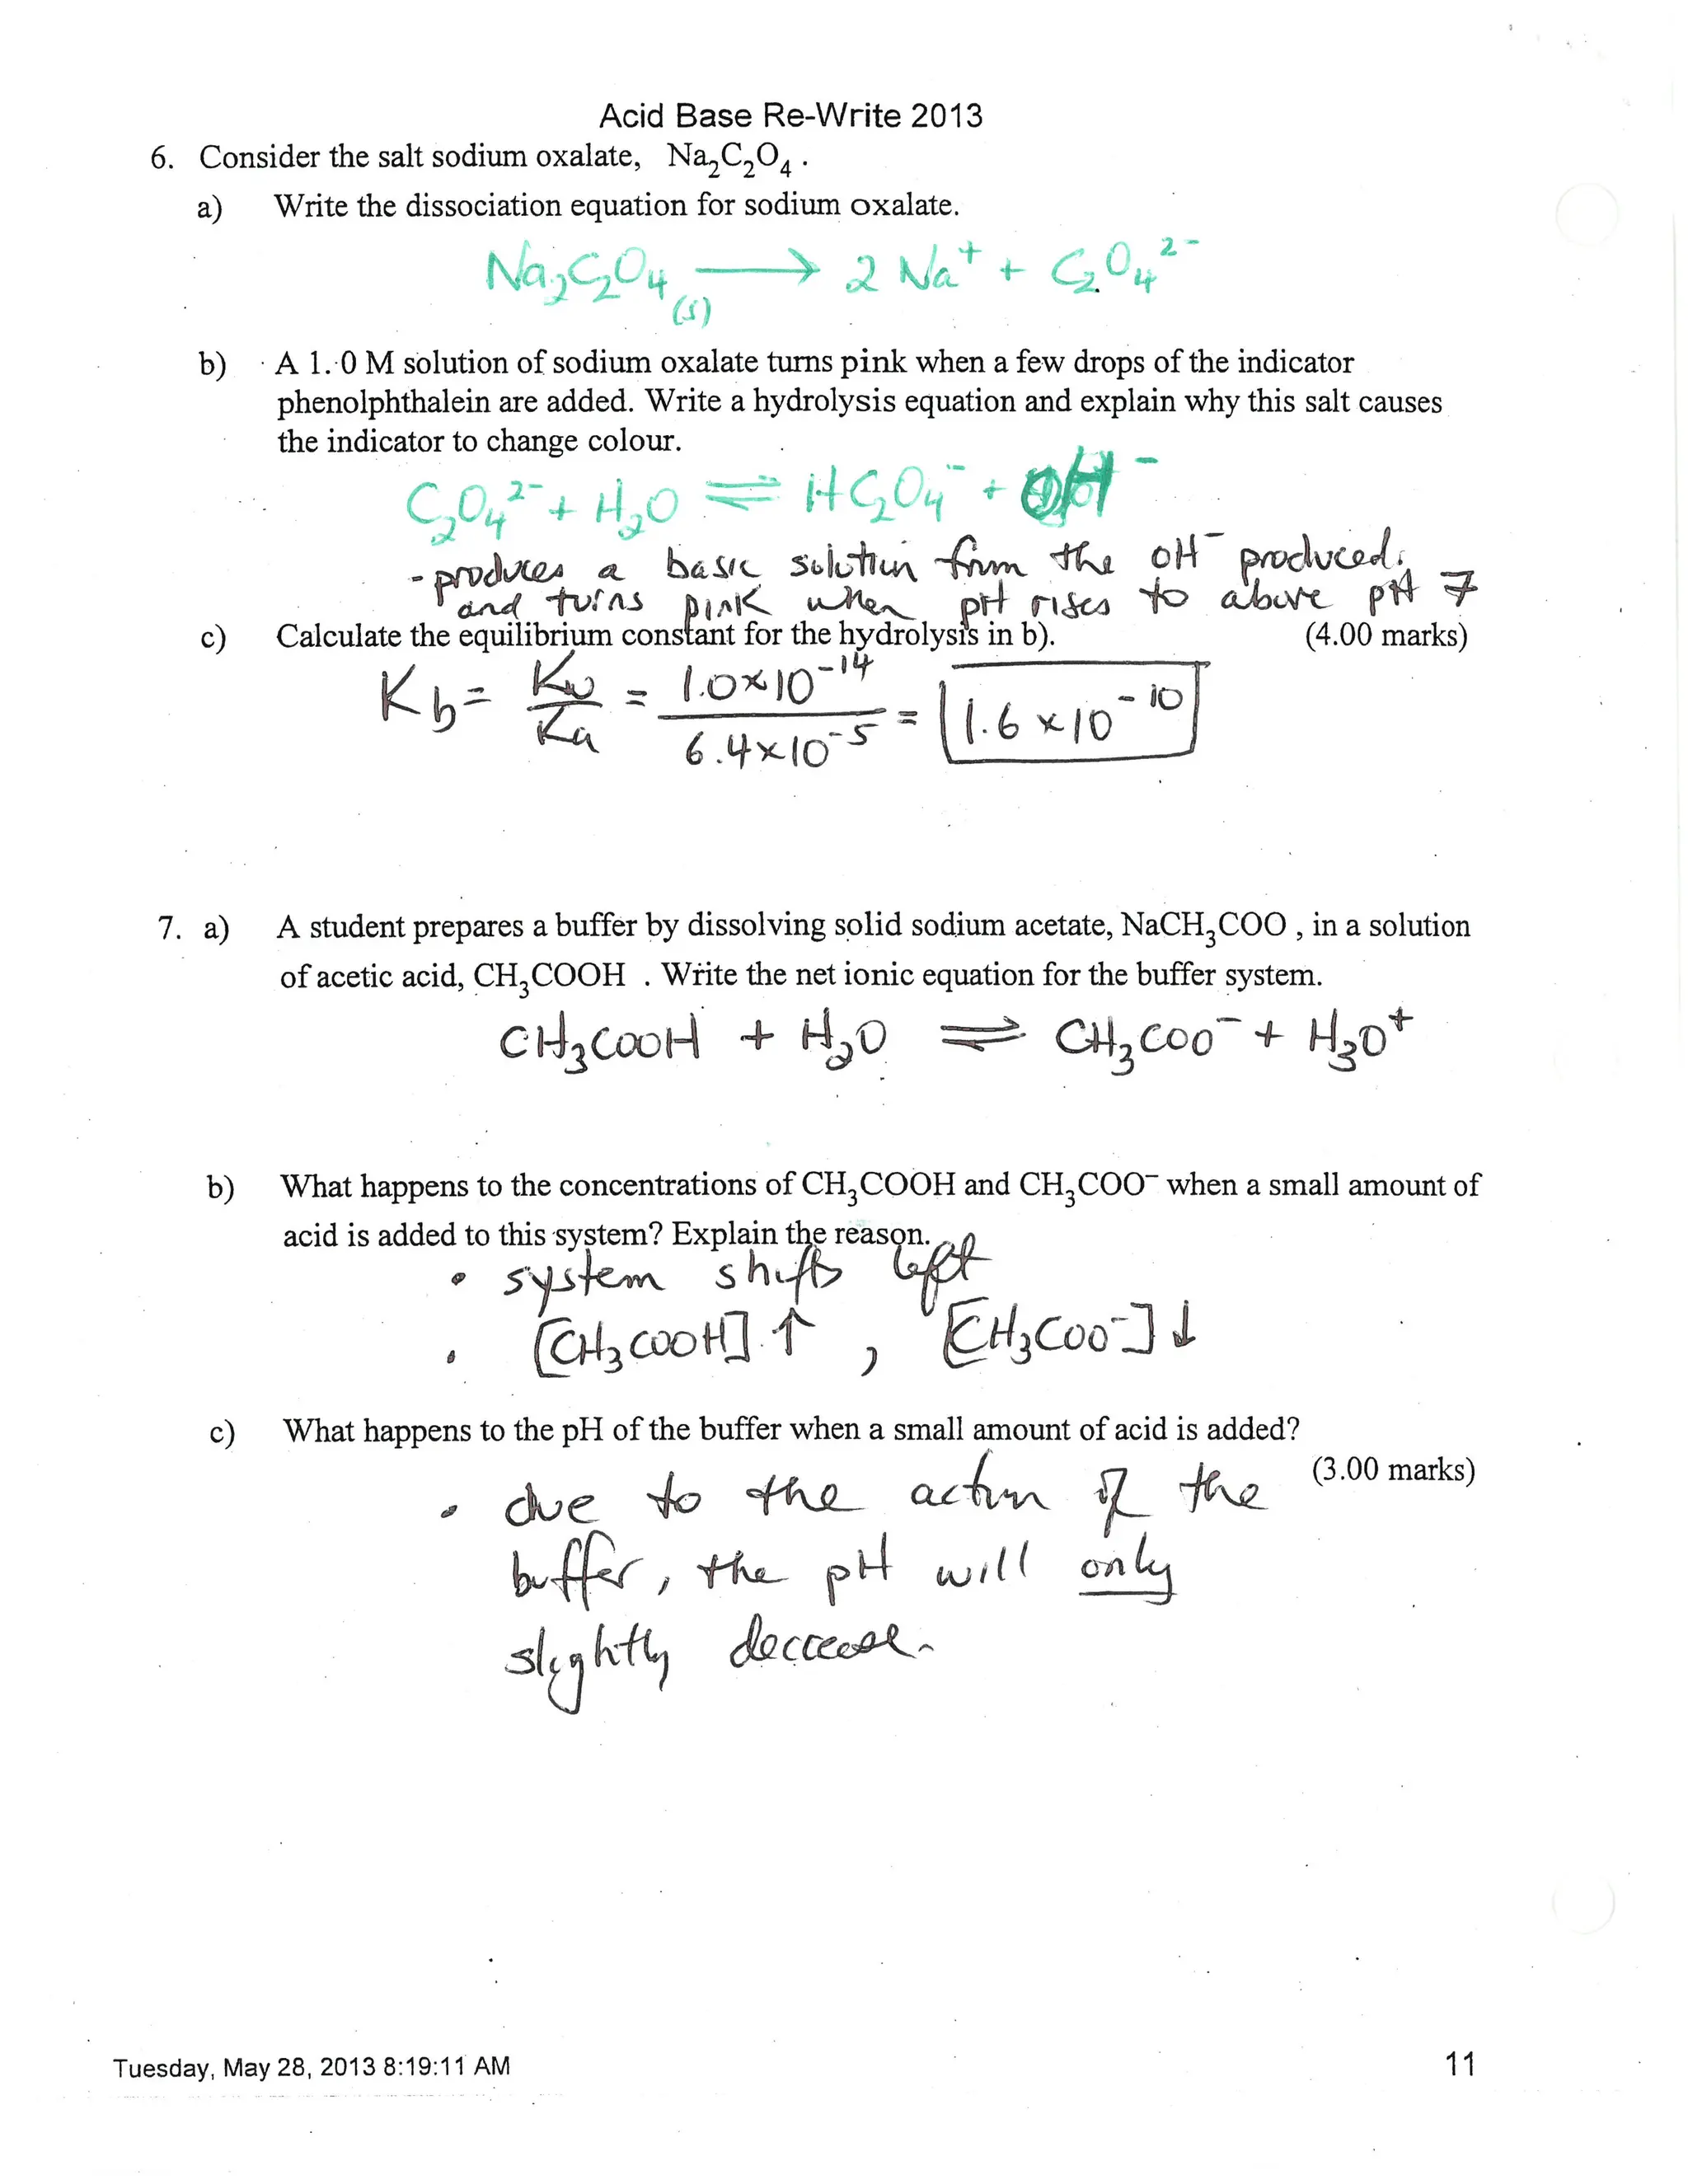 Acid Base Re-Write 2013
6. Consider the salt sodium oxalate, Na₂C₂O₄ .
a) Write the dissociation equation for sodium oxalate.
Na₂C₂O₄(s) → 2 Na⁺ + C₂O₄²⁻
b) A 1.0 M solution of sodium oxalate turns pink when a few drops of the indicator
phenolphthalein are added. Write a hydrolysis equation and explain why this salt causes
the indicator to change colour.
C₂O₄²⁻ + H₂O ⇌ HC₂O₄⁻ + OH⁻
- produces a basic solution from the OH⁻ produced.
and turns pink when pH rises to above pH 7
c) Calculate the equilibrium constant for the hydrolysis in b). (4.00 marks)
Kb = Kw/Ka = 1.0×10⁻¹⁴/6.4×10⁻⁵ = 1.6×10⁻¹⁰
7. a) A student prepares a buffer by dissolving solid sodium acetate, NaCH₃COO , in a solution
of acetic acid, CH₃COOH . Write the net ionic equation for the buffer system.
CH₃COOH + H₂O ⇌ CH₃COO⁻ + H₃O⁺
b) What happens to the concentrations of CH₃COOH and CH₃COO⁻ when a small amount of
acid is added to this system? Explain the reason.
• system shifts left
• [CH₃COOH] ↑ , [CH₃COO⁻] ↓
c) What happens to the pH of the buffer when a small amount of acid is added?
(3.00 marks)
• due to the action of the
buffer, the pH will only
slightly decrease.
Tuesday, May 28, 2013 8:19:11 AM 11